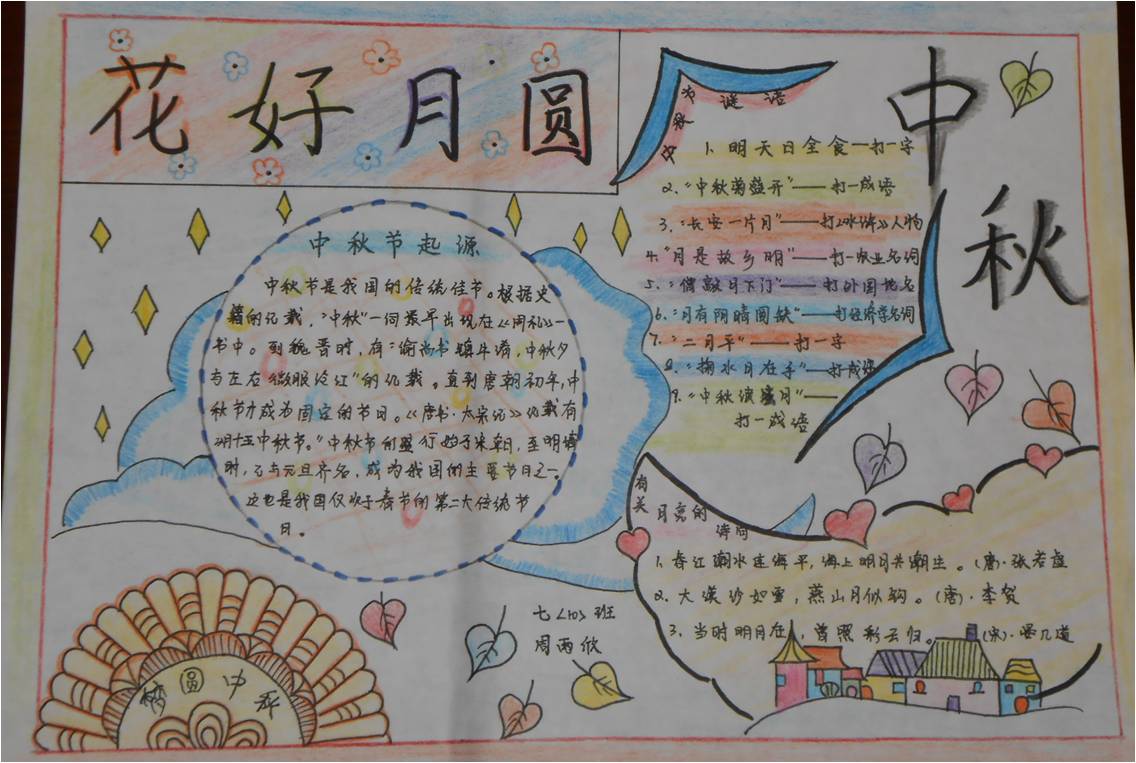 花好月圆
中秋
中秋节起源
中秋节是我国的传统佳节。根据史
籍的记载,“中秋”一词最早出现在《周礼》一
书中。到魏晋时,有“谕尚书镇牛渚,中秋夕
与左右微服泛江”的记载。直到唐朝初年,中
秋节才成为固定的节日。《唐书·太宗记》记载有
“八月十五中秋节。”中秋节的盛行始于宋朝,至明清
时,已与元旦齐名,成为我国的主要节日之一。
这也是我国仅次于春节的第二大传统节
日。
中秋节谜语
1、明天日全食——打一字
2、“中秋菊盛开”——打一成语
3、“长安一片月”——打《水浒》人物
4、“月是故乡明”——打一农业名词
5、“僧敲月下门”——打外国地名
6、“月有阴晴圆缺”——打经济学名词
7、“二月平”——打一字
8、“掬水月在手”——打成语
9、“中秋演蜜月”——
打一成语
有关月亮的
诗句
1、春江潮水连海平,海上明月共潮生。(唐)·张若虚
2、大漠沙如雪,燕山月似钩。(唐)·李贺
3、当时明月在,曾照彩云归。(宋)·晏几道
七<10>班
周雨欣
梦圆中秋